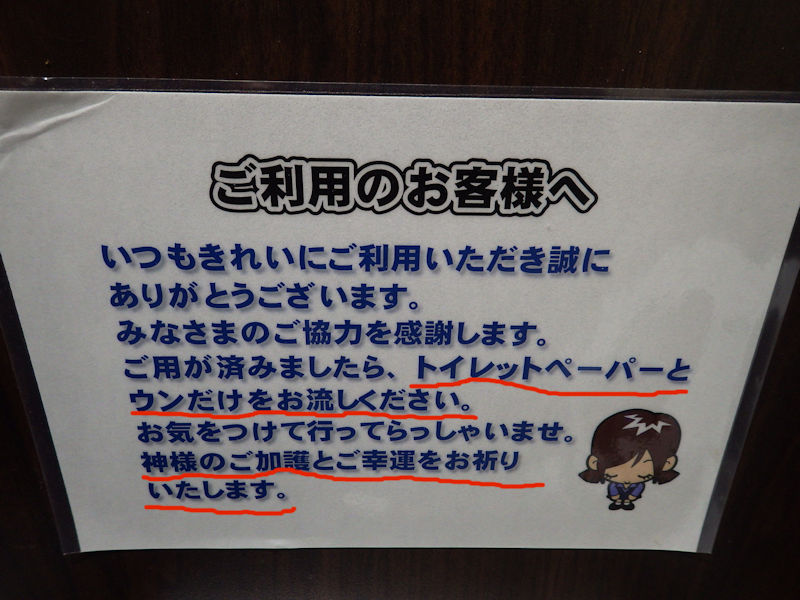 ご利用のお客様へ
いつもきれいにご利用いただき誠に
ありがとうございます。
みなさまのご協力を感謝します。
ご用が済みましたら、トイレットペーパーと
ウンだけをお流しください。
お気をつけて行ってらっしゃいませ。
神様のご加護とご幸運をお祈り
いたします。